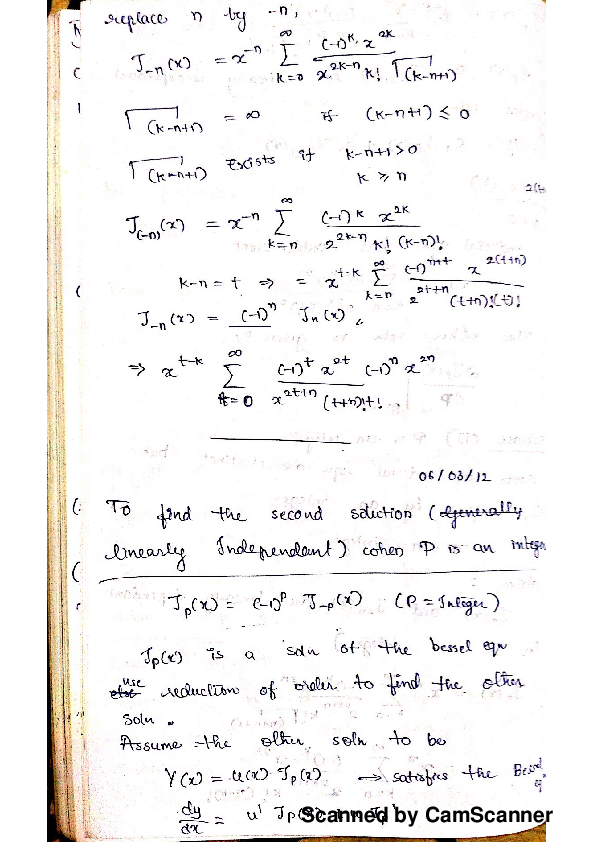 replace n by -n,
J_{-n}(x) = x^{-n} \sum_{k=0}^{\infty} \frac{(-1)^k x^{2k}}{x^{2k-n} k! \Gamma(k-n+1)}
\Gamma(k-n+1) = ∞ if (k-n+1) ≤ 0
\Gamma(k-n+1) exists if k-n+1>0
k ≥ n
J_{(-n)}(x) = x^{-n} \sum_{k=n}^{\infty} \frac{(-1)^k x^{2k}}{2^{2k-n} k! (k-n)!}
k-n = t ⇒ = x^{t-k} \sum_{k=n}^{\infty} \frac{(-1)^{n+t} x^{2(t+n)}}{2^{2t+n} (t+n)! (t)!}
J_{-n}(x) = (-1)^n J_n(x)
⇒ x^{t-k} \sum_{t=0}^{∞} \frac{(-1)^t x^{2t} (-1)^n x^{2n}}{x^{2t+n} (t+n)! t!}
06/03/12
To find the second solution (generally
linearly Independant) when P is an integ
J_p(x) = (-1)^p J_{-p}(x) (P = Integer)
J_p(x) is a soln of the bessel eqn
use reduction of order to find the other
soln.
Assume the other soln to be
Y(x) = u(x) J_p(x) → satisfies the Bessel
\frac{dy}{dx} = u' J_p
Scanned by CamScanner